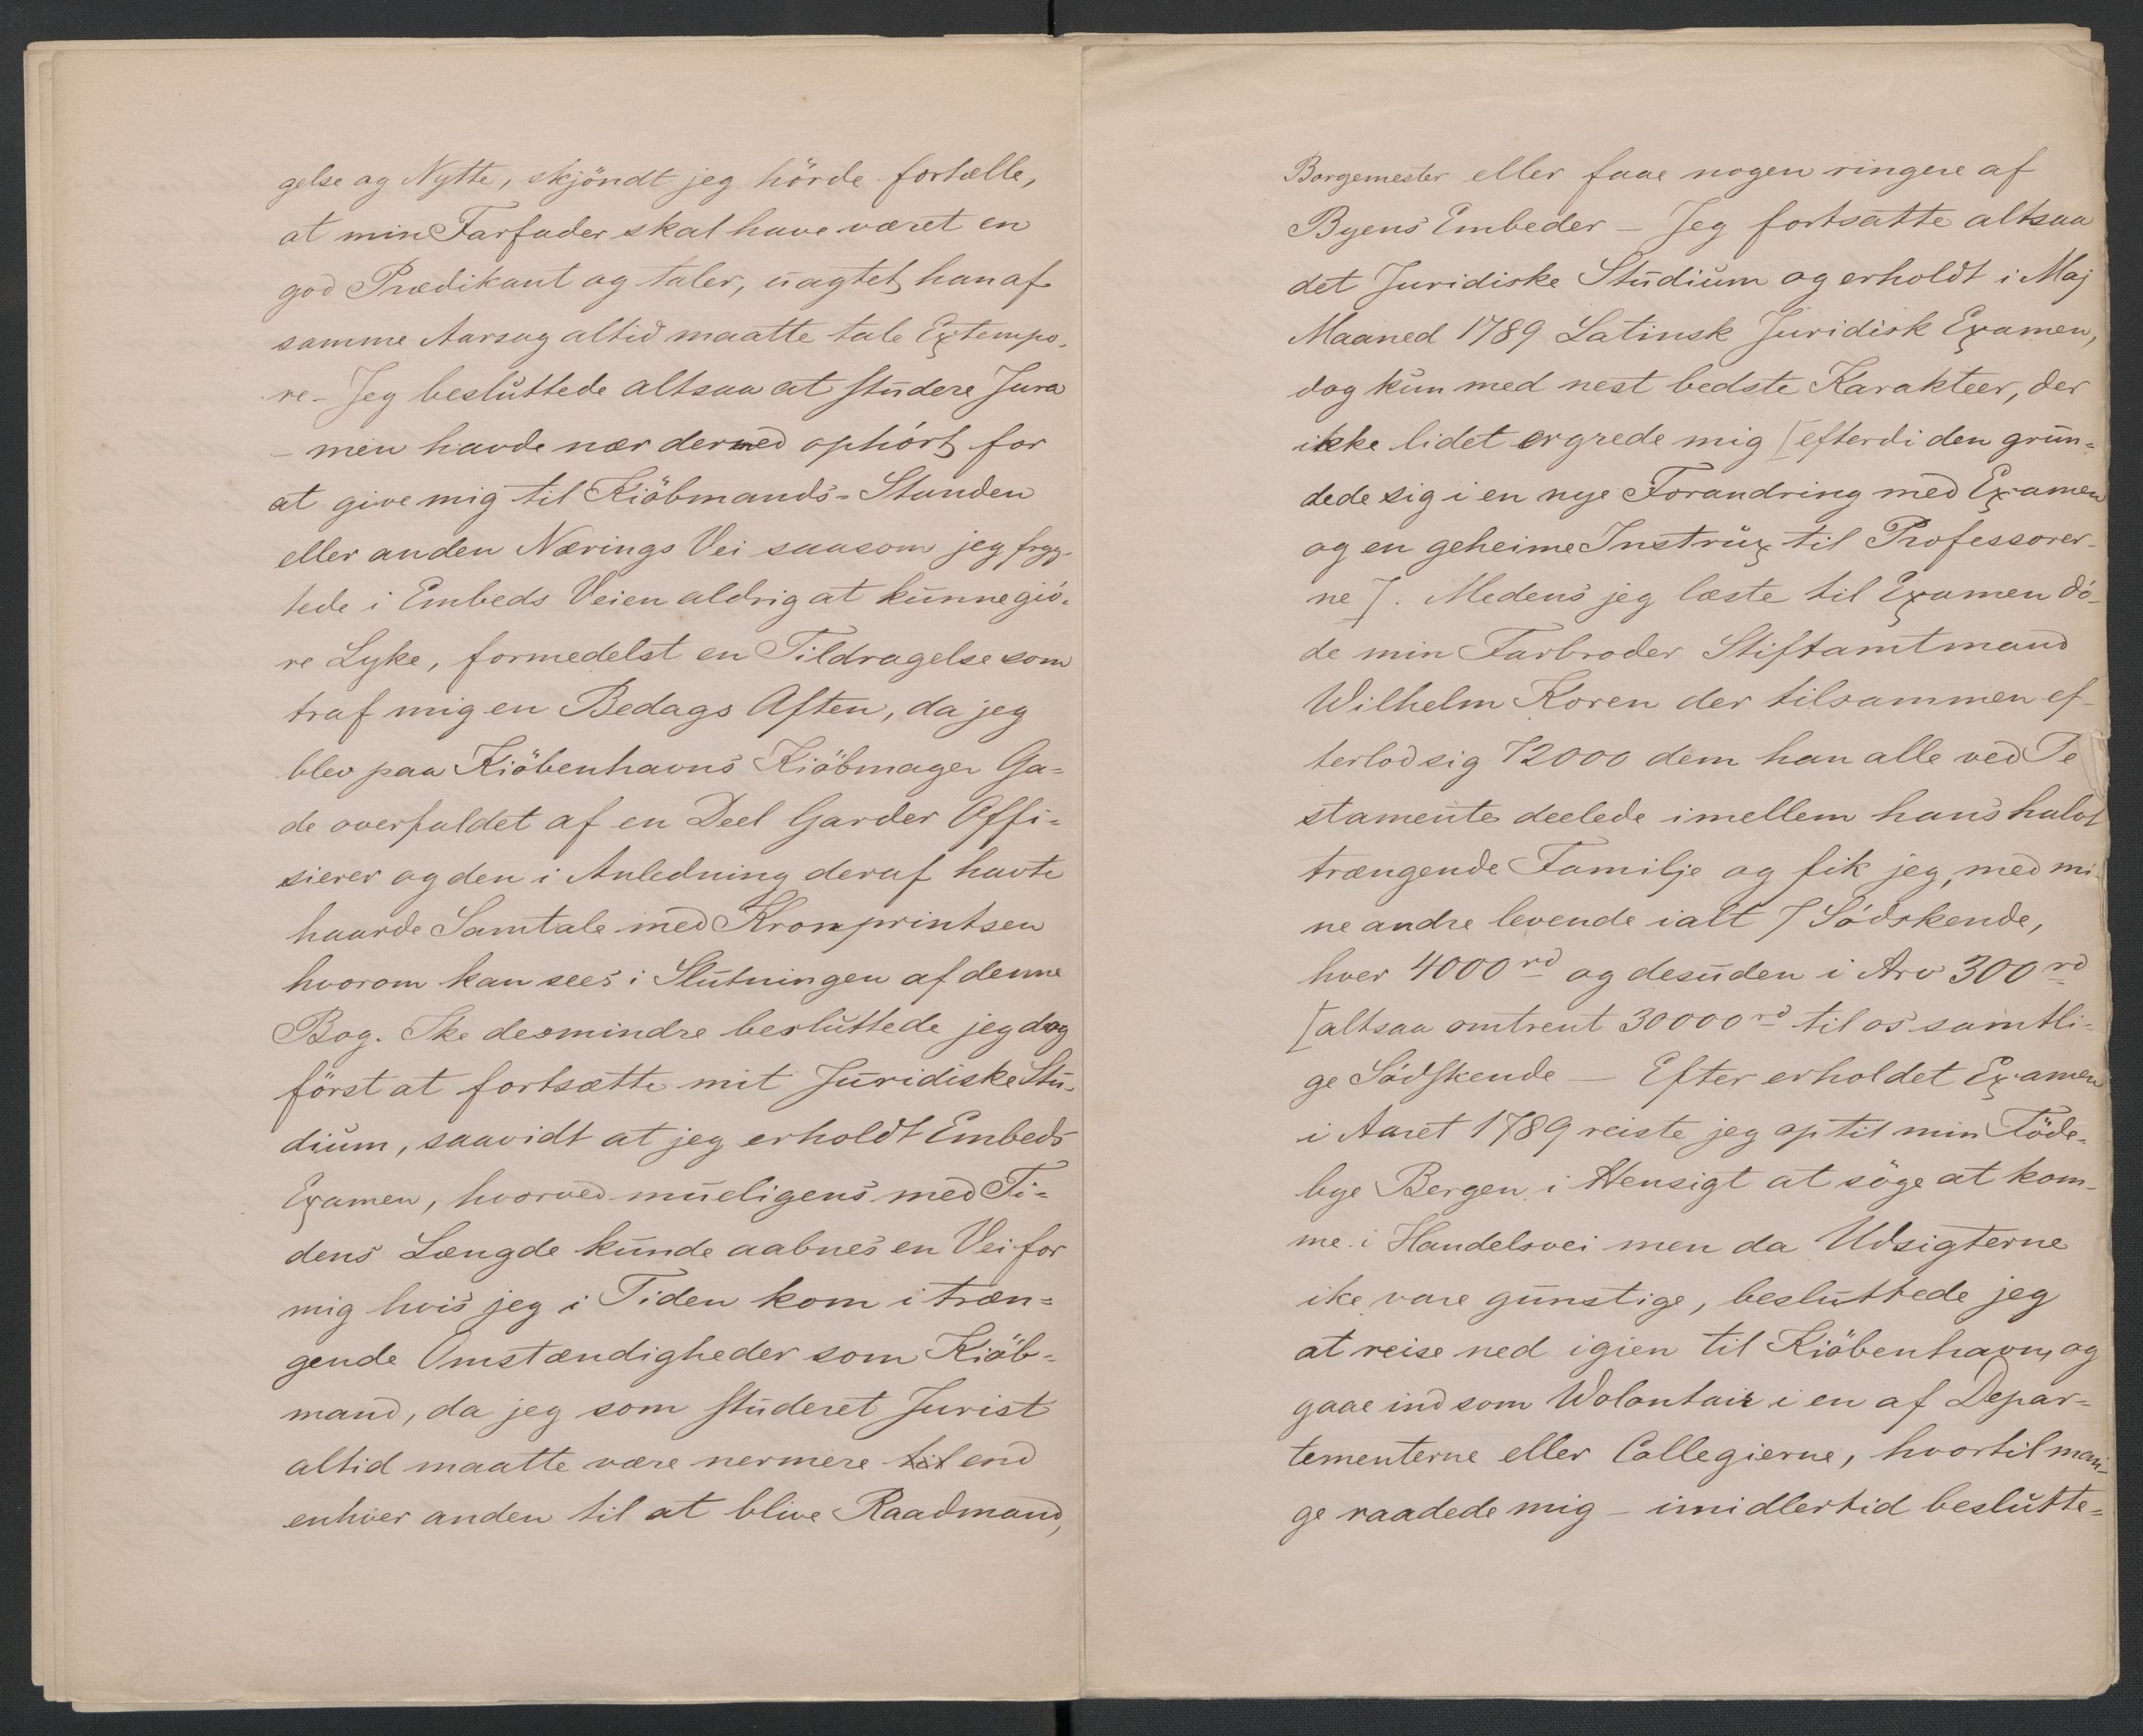 gelse og Nytte, skjöndt jeg hörde fortælle,
at min Farfader skal have været en
god Prædikant og taler, uagtet han af
samme Aarsag altid maatte tale Extempo-
re - Jeg besluttede altsaa at studere Jura
- men havde nær dermed ophört for
at give mig til Kiöbmands-Standen
eller anden Nærings Vei saasom jeg fryg-
tede i Embeds Veien aldrig at kunne giö-
re Lyke, formedelst en Tildragelse som
traf mig en Bedags Aften, da jeg
blev paa Kiöbenhavns Kiöbmager Ga=
de overfaldet af en Deel Garder Offi=
sierer og den i Anledning deraf havte
haarde Samtale med Kronprintsen
hvorom kan sees i Slutningen af denne
Bog. Ike desmindre besluttede jeg dog
först at fortsætte mit Juridiske Stu-
dium, saavidt at jeg erholdt Embeds
Examen, hvorved mueligens med Ti=
dens Længde kunde aabnes en Vei for
mig hvis jeg i Tiden kom i træn=
gende Omstændigheder som Kiöb=
mand, da jeg som studeret Jurist
altid maatte være nermere til end
enhver anden til at blive Raadmand,
Borgemester eller faae nogen ringere af
Byens Embeder - Jeg fortsatte altsaa
det Juridiske Studium og erholdt i Maj
Maaned 1789 Latinsk Juridisk Examen,
dog kun med nest bedste Karakteer, der
ikke lidet ergrede mig [efterdi den grun=
dede sig i en nye Forandring med Examen
og en geheime Instrux til Professorer-
ne]. Medens jeg læste til Examen dö-
de min Farbroder Stiftamtmand
Wilhelm Koren der tilsammen ef-
terlod sig 72000 dem han alle ved Te
stamente deelede imellem hans halvt
trængende Familje og fik jeg, med mi-
ne andre levende ialt 7 Södskende,
hver 4000 rd og desuden i Arv 300 rd
[altsaa omtrent 30000 rd til os samtli-
ge Södskende - Efter erholdet Examen
i Aaret 1789 reiste jeg op til min Föde-
bye Bergen i Hensigt at söge at kom-
me i Handelsvei men da Udsigterne
ike vare gunstige, besluttede jeg
at reise ned igien til Kiöbenhavn, og
gaae ind som Wolontair i en af Depar=
tementerne eller Collegierne, hvortil man-
ge raadede mig - imidlertid beslutte=